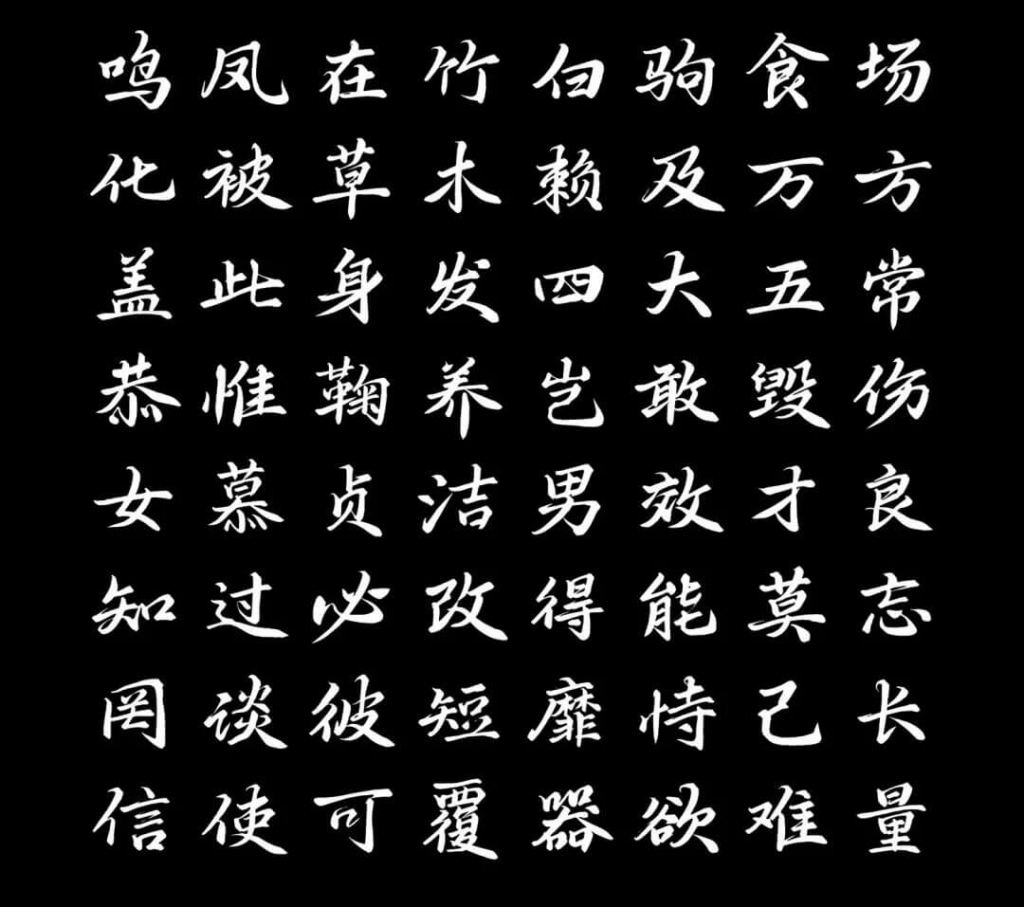 鸣凤在竹白驹食场
化被草木赖及万方
盖此身发四大五常
恭惟鞠养岂敢毁伤
女慕贞洁男效才良
知过必改得能莫忘
罔谈彼短靡恃己长
信使可覆器欲难量